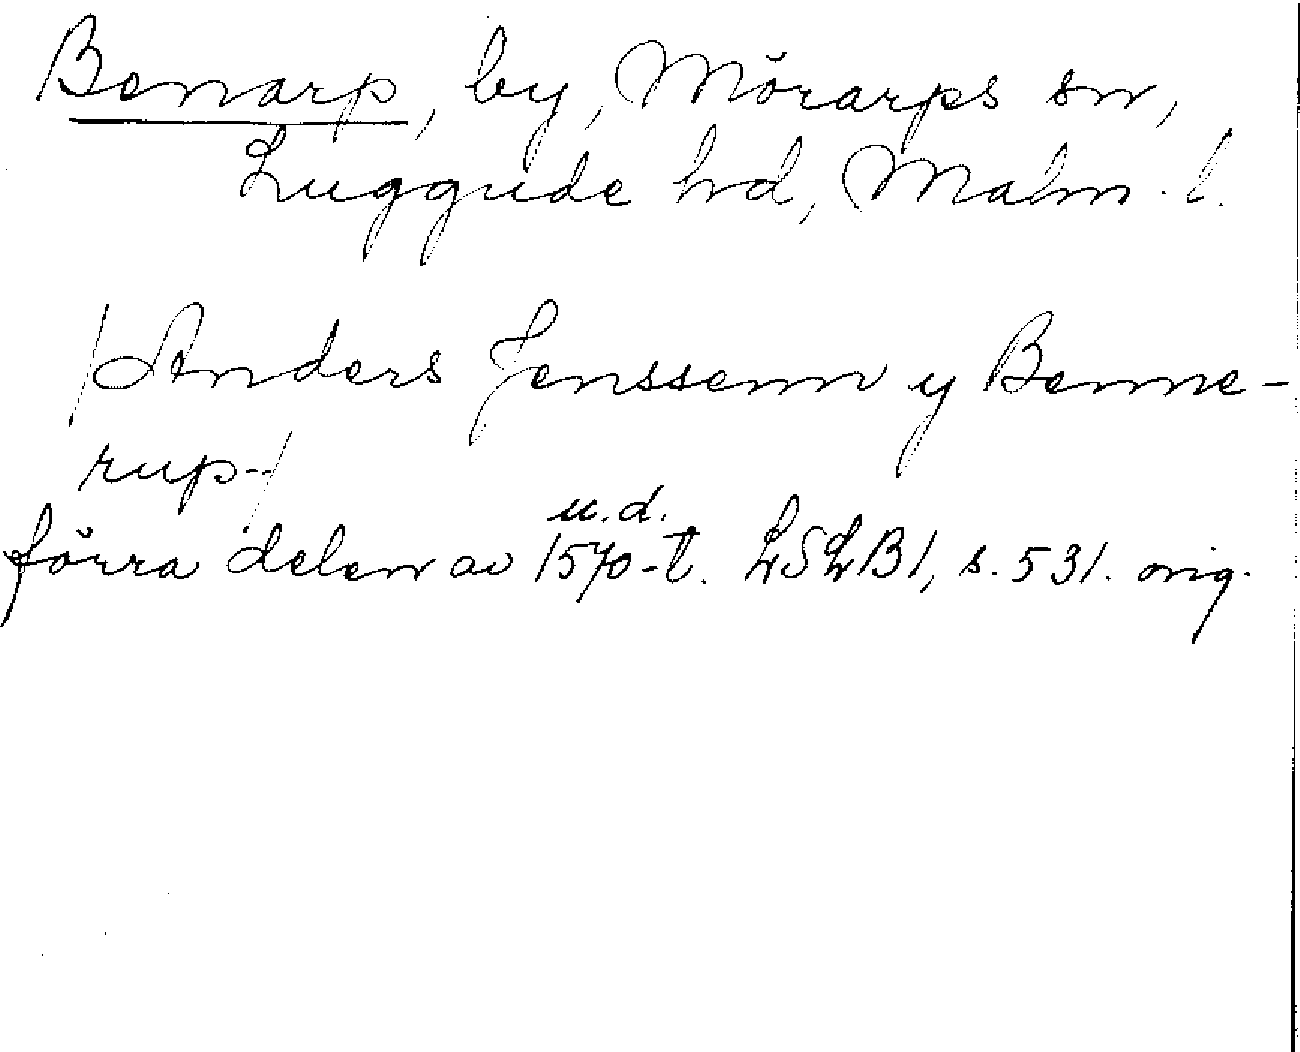 Benarp, by, Mörarps sn,
Luggude hd, Malm. l.
/Anders Jenssenn y Benne-
rup-/
u.d.
förra delen av 1570-t. LSLB1, s. 531. orig.